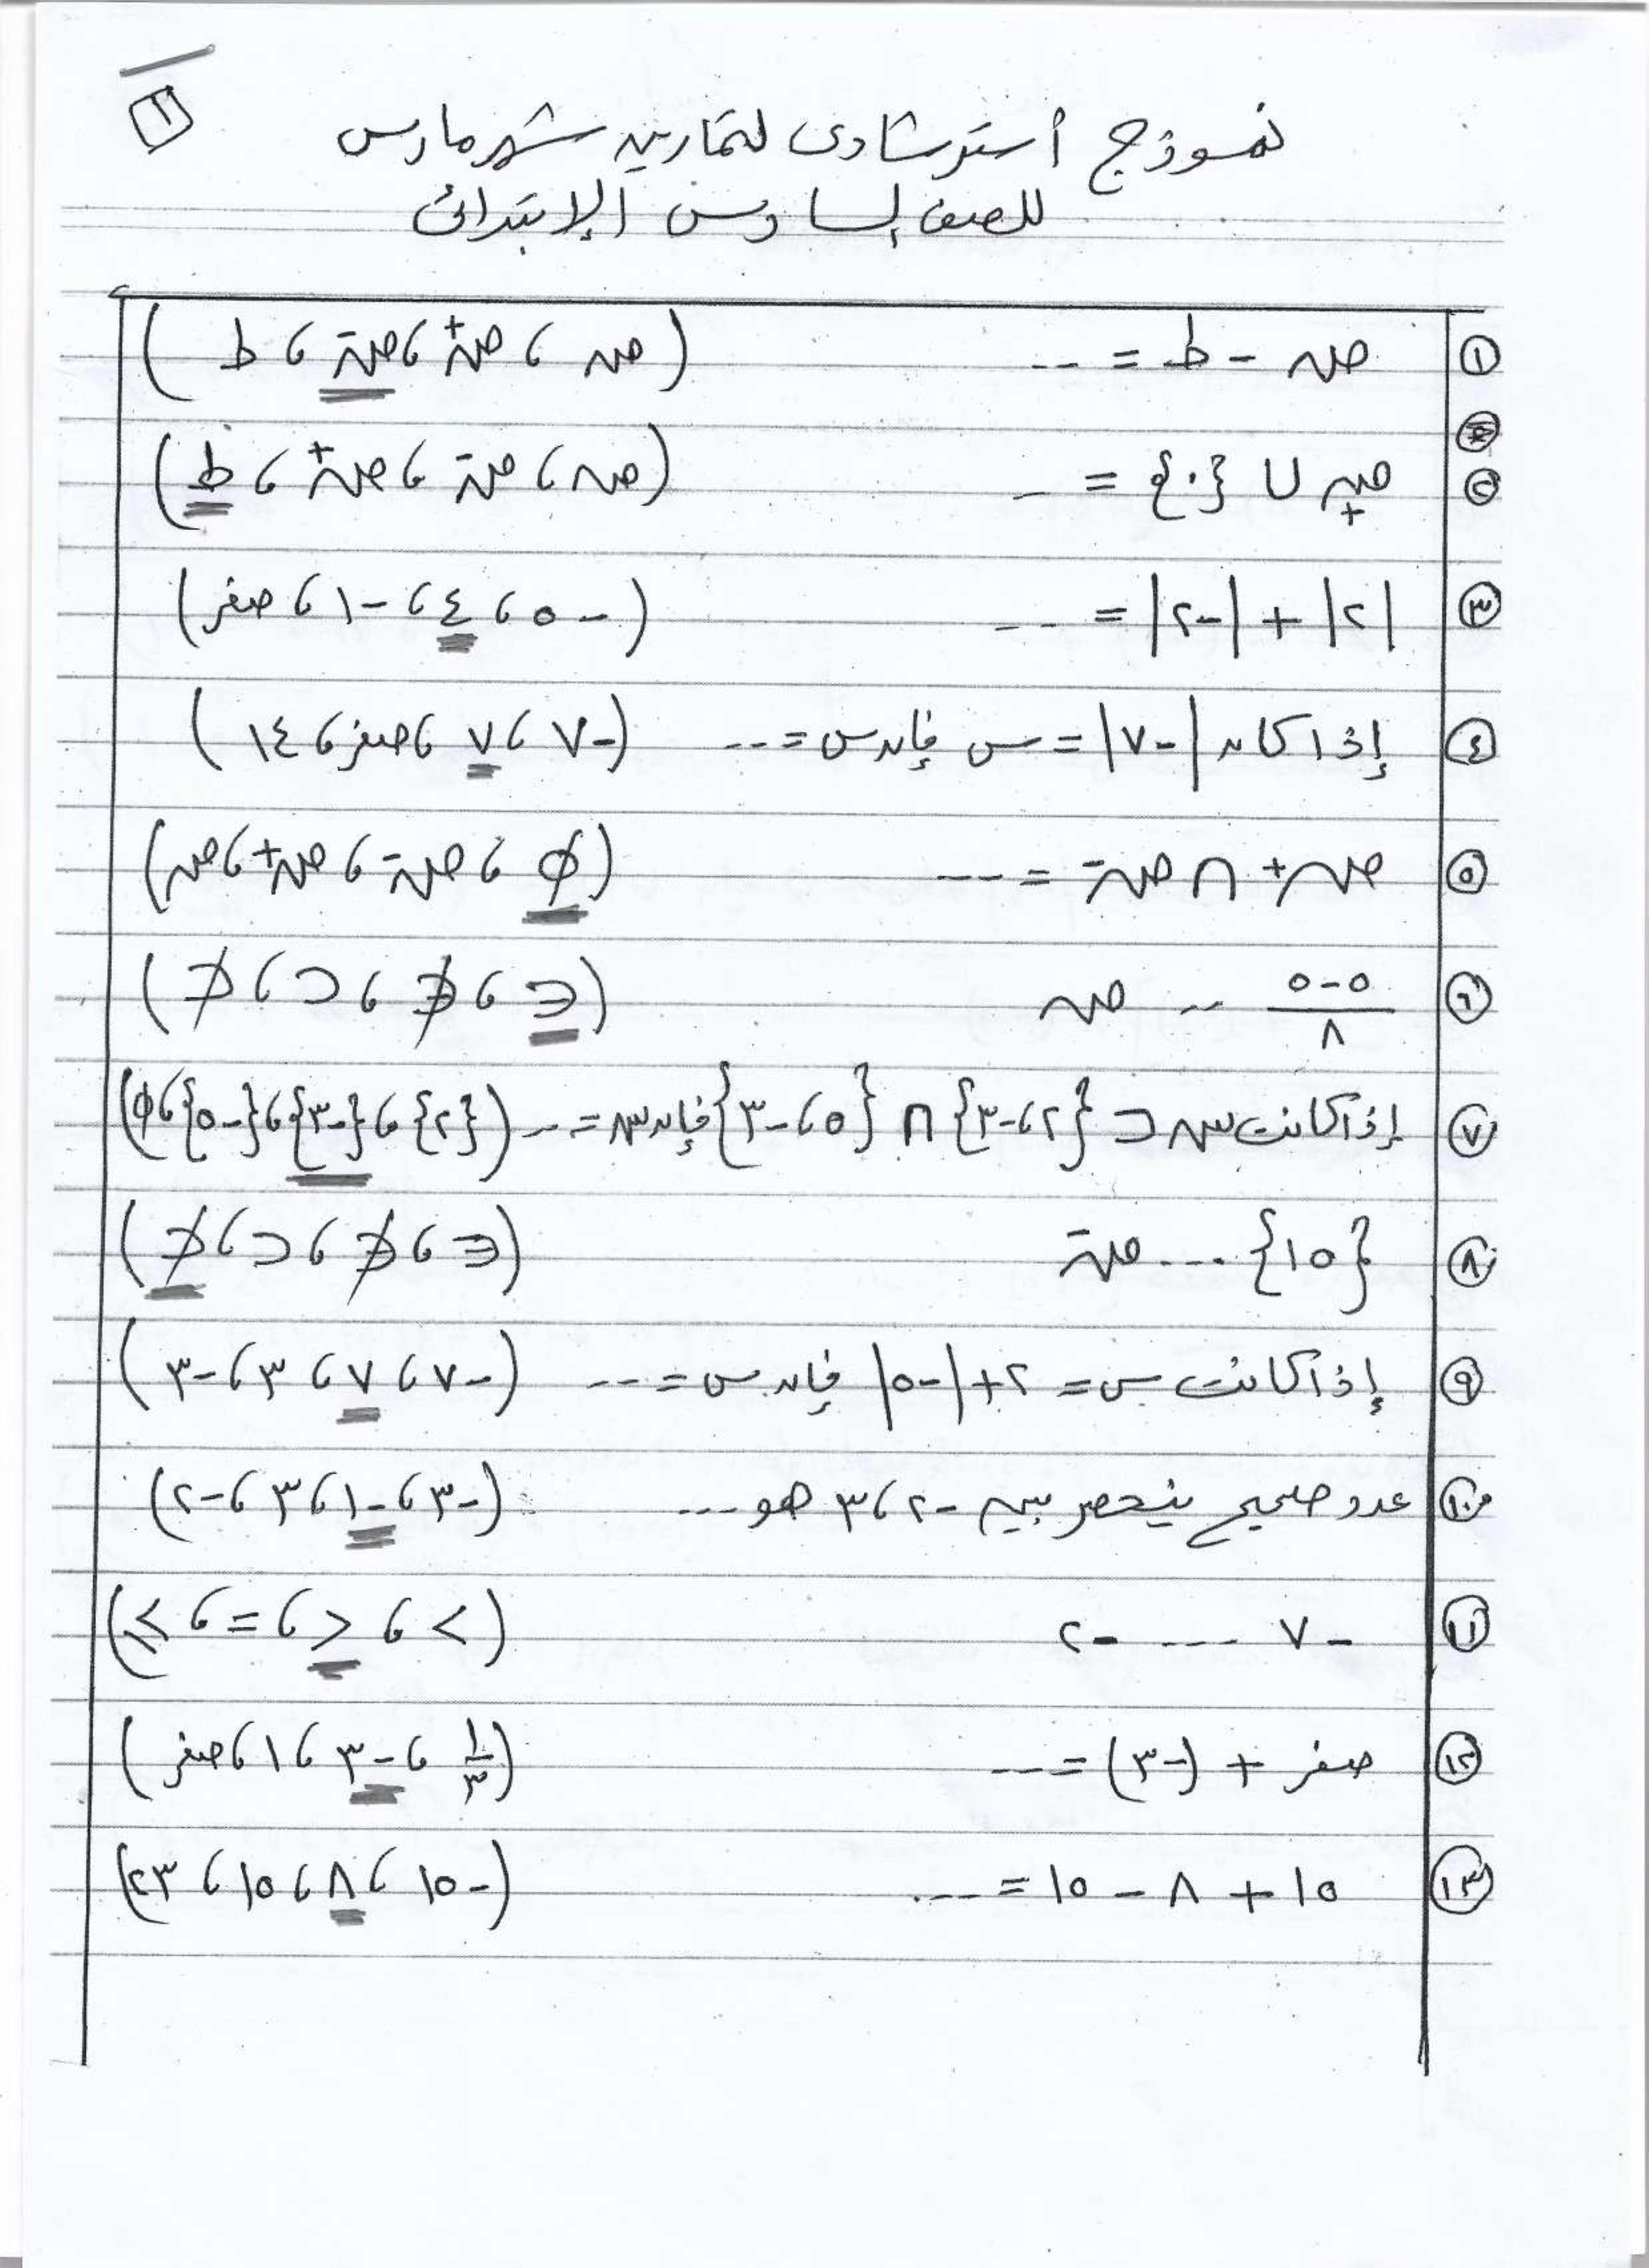 ١
نموذج أسترشادى لتمارين شهر مارس
للصف السادس الإبتدائى
١ صـ - ط = --- (صـ ، صـ+ ، صـ- ، ط)
٢ صـ+ ∪ {٠} = -- (صـ ، صـ- ، صـ+ ، ط)
٣ |٢| + |-٢| = --- (-٥ ، ٤ ، -١ ، صفر)
٤ إذا كان |-٧| = س فإن س = --- (-٧ ، ٧ ، صفر ، ١٤)
٥ صـ+ ∩ صـ- = --- (φ ، صـ- ، صـ+ ، صـ)
٦ ٥-٥/٨ --- صـ (∈ ، ∉ ، ⊂ ، ⊄)
٧ إذا كانت سـ ⊂ {٢ ، -٣} ∩ {٥ ، -٣} فإن سـ = --- ({٢} ، {-٣} ، {-٥} ، φ)
٨ {١٥} --- صـ- (∈ ، ∉ ، ⊂ ، ⊄)
٩ إذا كانت س = ٢ + |-٥| فإن س = --- (-٧ ، ٧ ، ٣ ، -٣)
١٠ عدد صحيح ينحصر بين -٢ ، ٣ هو --- (-٣ ، -١ ، ٣ ، -٢)
١١ -٧ --- -٢ (< ، > ، = ، ≥)
١٢ صفر + (-٣) = --- (١/٣ ، -٣ ، ١ ، صفر)
١٣ ١٥ + ٨ - ١٥ = --- (-١٥ ، ٨ ، ١٥ ، ٢٣)